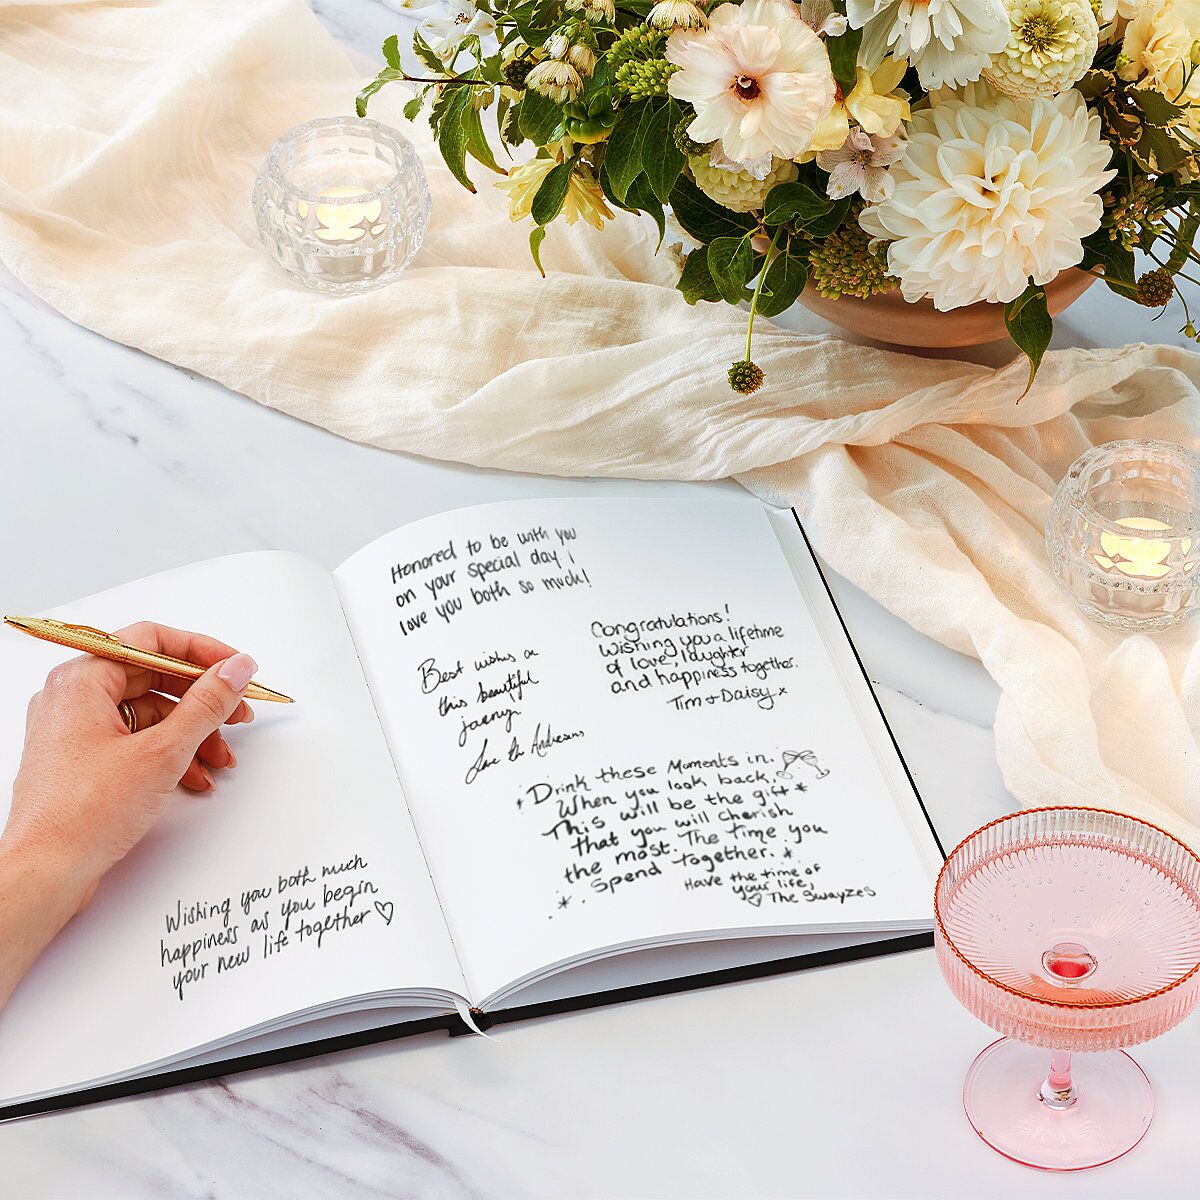 Wishing you both much
happiness as you begin
your new life together ♡
Honored to be with you
on your special day I
love you both so much!
Best wishes on
this beautiful
journey
Love the Andersens
Congratulations!
Wishing you a lifetime
of love, laughter
and happiness together.
Tim & Daisy x
Drink these Moments in.
When you look back,
This will be the gift *
that you will cherish
the most. The time you
Spend together. *
Have the time of
your life,
♡ The Swayzes